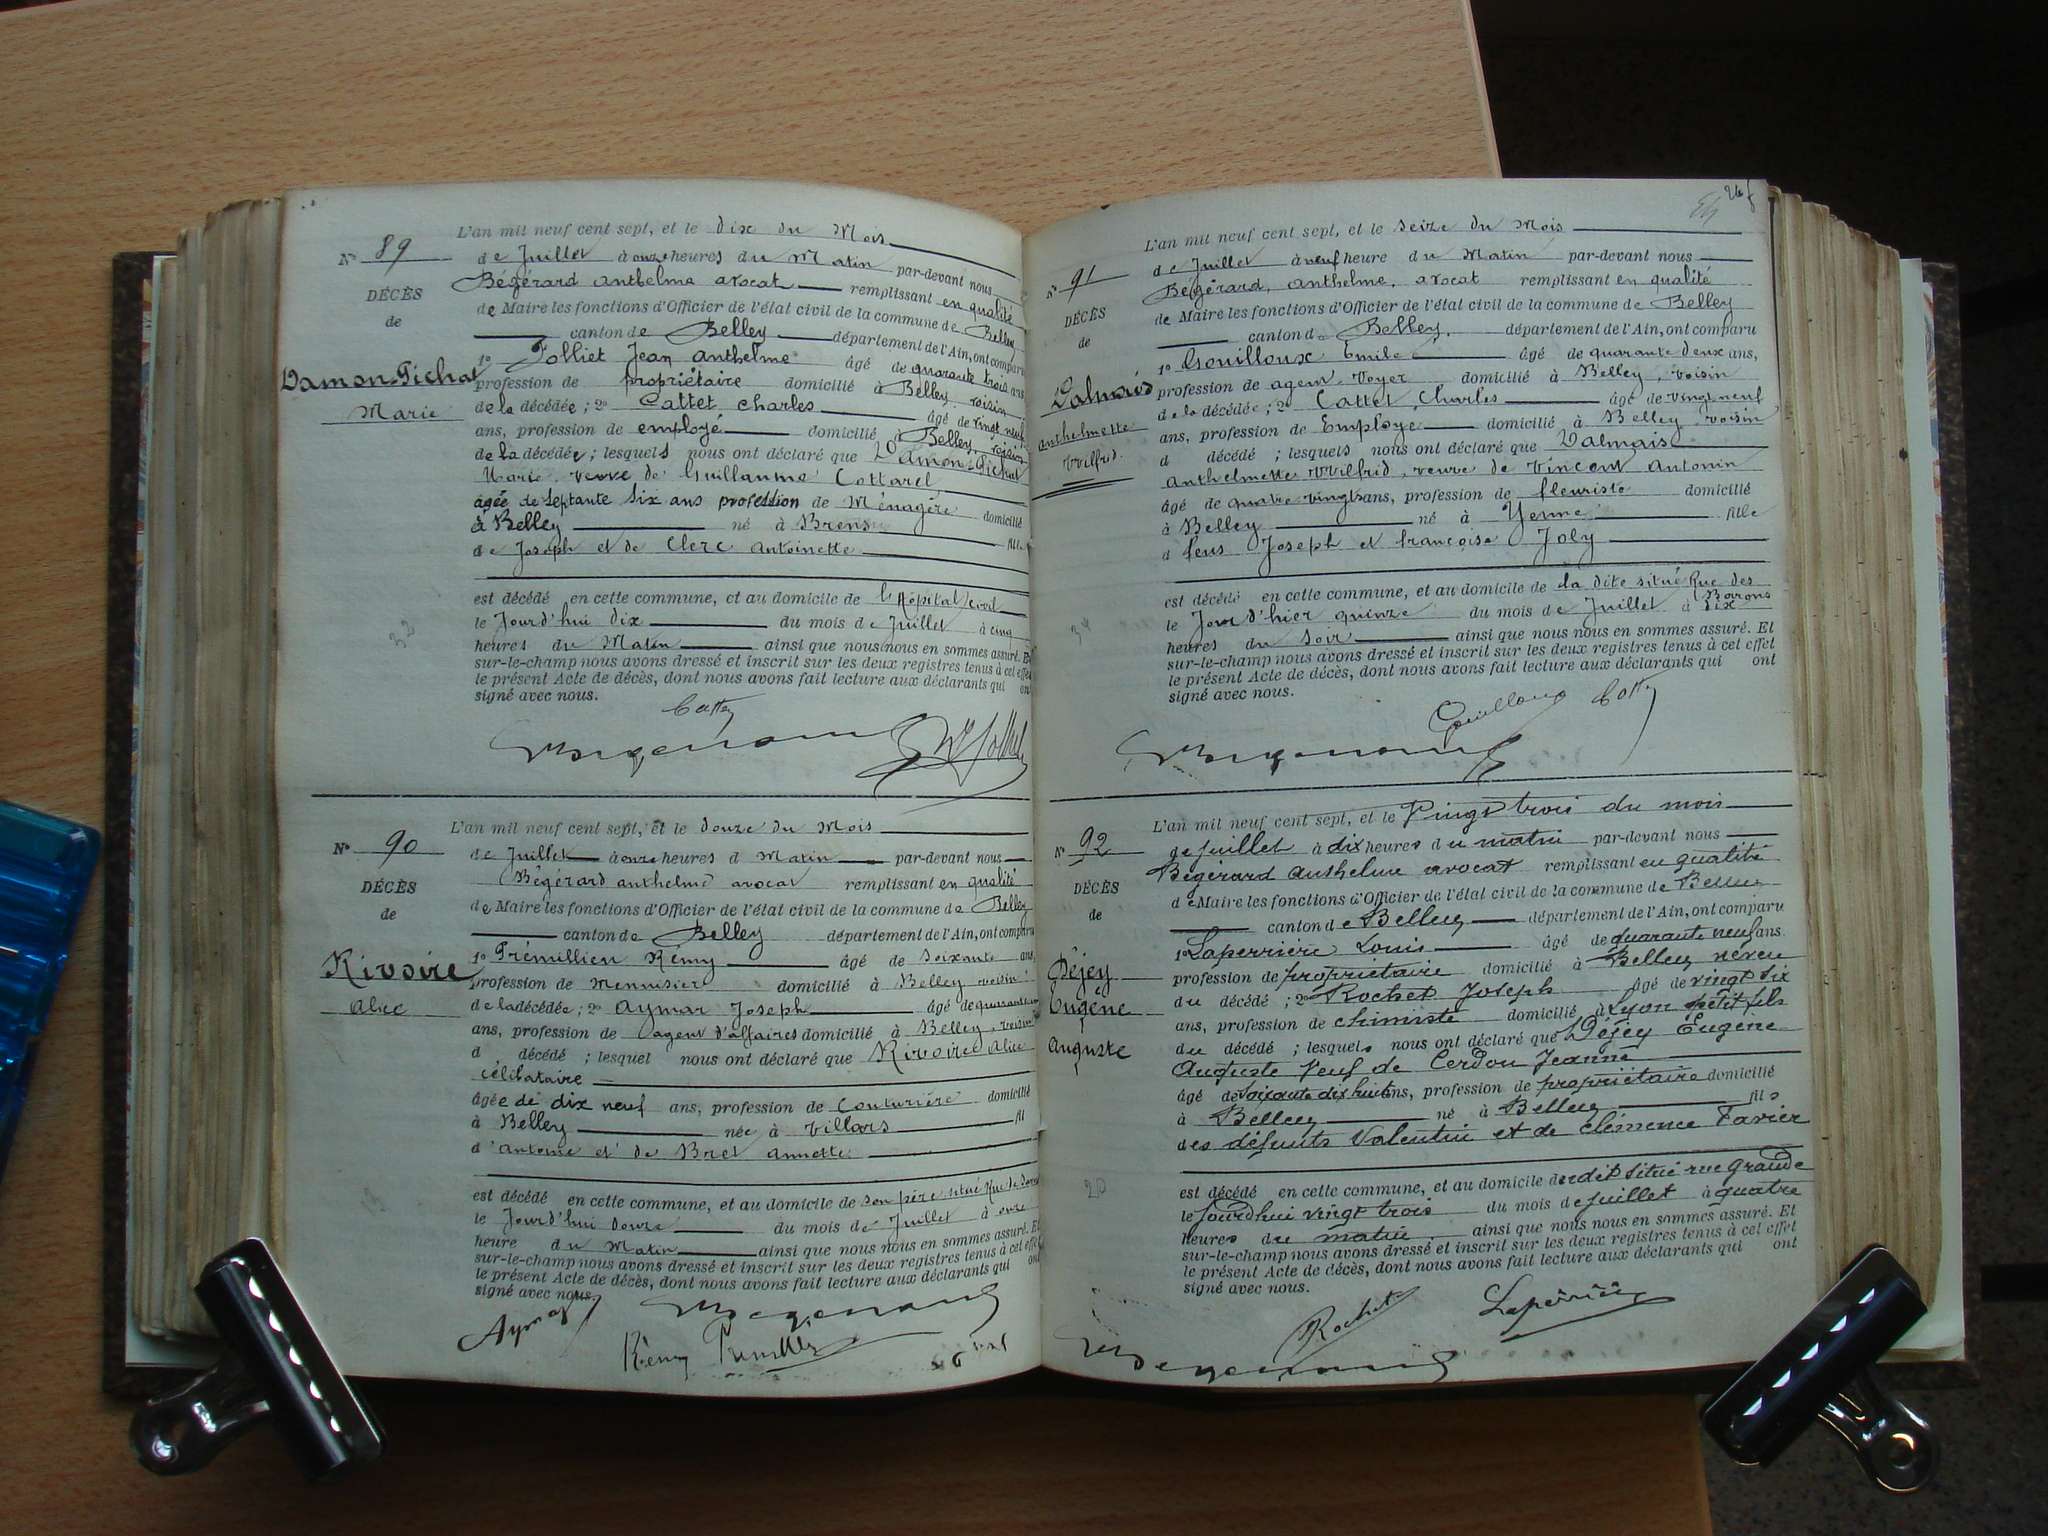 L'an mil neuf cent sept, et le dix du Mois
N° 89
de Juillet à onze heures du Matin par-devant nous
Bégérard anthelme avocat remplissant en qualité
DÉCÈS
de Maire les fonctions d'Officier de l'état civil de la commune de Belley
de
canton de Belley département de l'Ain, ont comparu
1° Jolliet Jean anthelme âgé de quarante trois ans
Damon-Pichat
profession de propriétaire domicilié à Belley, voisin
Marie
de la décédée; 2° Cattet charles âgé de vingt neuf
ans, profession de employé domicilié à Belley, voisin
de la décédée; lesquels nous ont déclaré que Damon-Pichat
Marie veuve de Guillaume Cottarel
âgée de septante six ans profession de Ménagère domicilié
à Belley né à Brens
fille
de Joseph et de Clerc antoinette
est décédé en cette commune, et au domicile de l'Hôpital civil
le Jourd'hui dix du mois de Juillet à cinq
heures du Matin ainsi que nous nous en sommes assuré. Et
sur-le-champ nous avons dressé et inscrit sur les deux registres tenus à cet effet
le présent Acte de décès, dont nous avons fait lecture aux déclarants qui ont
signé avec nous.
L'an mil neuf cent sept, et le douze du Mois
N° 90
de Juillet à onze heures d Matin par-devant nous
Bégérard anthelme avocat remplissant en qualité
DÉCÈS
de Maire les fonctions d'Officier de l'état civil de la commune de Belley
de
canton de Belley département de l'Ain, ont comparu
1° Prémillien Rémy âgé de soixante ans,
Rivoire
profession de Menuisier domicilié à Belley voisin
Alice
de la décédée; 2° Aymar Joseph âgé de quarante
ans, profession de agent d'affaires domicilié à Belley, voisin
d décédé; lesquel nous ont déclaré que Rivoire Alice
célibataire
âgée de dix neuf ans, profession de Couturière domicilié
à Belley née à Villars fil
d'Antoine et de Bret Annette
est décédé en cette commune, et au domicile de son père situé Rue de
le Jourd'hui douze du mois de Juillet à onze
heure du Matin ainsi que nous nous en sommes assuré. Et
sur-le-champ nous avons dressé et inscrit sur les deux registres tenus à cet effet
le présent Acte de décès, dont nous avons fait lecture aux déclarants qui ont
signé avec nous.
L'an mil neuf cent sept, et le seize du Mois
N° 91
de Juillet à neuf heure du Matin par-devant nous
Bégérard, anthelme, avocat remplissant en qualité
DÉCÈS
de Maire les fonctions d'Officier de l'état civil de la commune de Belley
de
canton de Belley. département de l'Ain, ont comparu
1° Gouilloux Emile âgé de quarante deux ans,
Dalmais
profession de agent-Voyer domicilié à Belley, voisin
de la décédée; 2° Cattet, Charles âgé de vingt neuf
Anthelmette
ans, profession de Employé domicilié à Belley voisin
Wilfrid.
d décédé; lesquels nous ont déclaré que Dalmais
Anthelmette Wilfrid, veuve de Vincent Antonin
âgé de quatre vingts ans, profession de fleuriste domicilié
à Belley né à Yenne fille
d feus Joseph et françoise Joly
est décédé en cette commune, et au domicile de la dite situé Rue des
Barons
le Jour d'hier quinze du mois de Juillet à Dix
heures du Soir ainsi que nous nous en sommes assuré. Et
sur-le-champ nous avons dressé et inscrit sur les deux registres tenus à cet effet
le présent Acte de décès, dont nous avons fait lecture aux déclarants qui ont
signé avec nous.
L'an mil neuf cent sept, et le Vingt trois du mois
N° 92
de juillet à dix heures du matin par-devant nous
Bégérard Anthelme avocat remplissant en qualité
DÉCÈS
de Maire les fonctions d'Officier de l'état civil de la commune de Belley
de
canton de Belley département de l'Ain, ont comparu
1° Laperrière Louis âgé de quarante neuf ans
Déjey
profession de propriétaire domicilié à Belley neveu
du décédé; 2° Rochet Joseph âgé de vingt six
Eugène
ans, profession de chimiste domicilié à Lyon petit fils
Auguste
du décédé; lesquels nous ont déclaré que Déjey Eugène
Auguste Veuf de Cerdon Jeanne
âgé de soixante dix huit ans, profession de propriétaire domicilié
à Belley né à Belley fils
des défunts Valentin et de Clémence Favier
est décédé en cette commune, et au domicile du dit situé rue Grande
le jourdhui vingt trois du mois de juillet à quatre
heures du matin ainsi que nous nous en sommes assuré. Et
sur-le-champ nous avons dressé et inscrit sur les deux registres tenus à cet effet
le présent Acte de décès, dont nous avons fait lecture aux déclarants qui ont
signé avec nous.
Rochet Laperrière